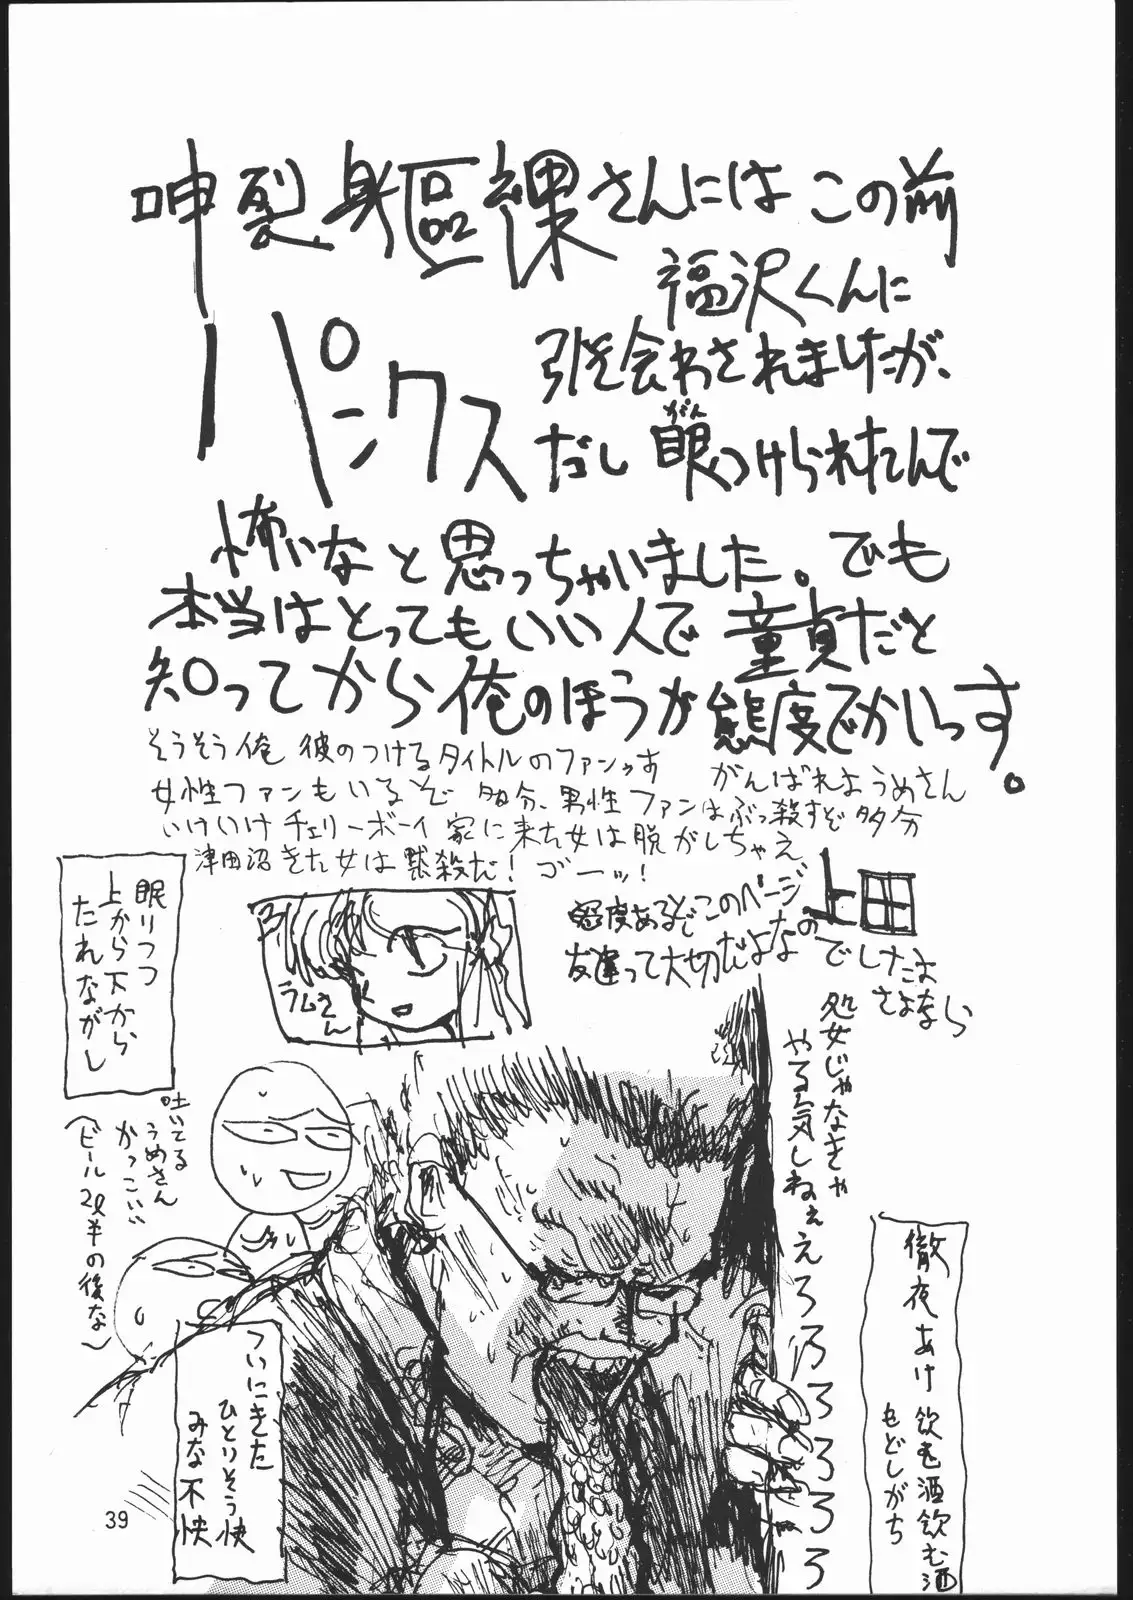 呻裂身區裸さんには この前
福沢くんに
引き会わされましたが、
パンクス
だし 眼つけられたんで
がん
怖いなと思っちゃいました。でも
本当はとってもいい人で 童貞だと
知ってから俺のほうが態度でかいっす。
そうそう俺 彼のつけるタイトルのファンっす
がんばれようめさん
女性ファンもいるぞ 多分、男性ファンはぶっ殺すぞ多分
いけいけチェリーボーイ 家に来た女は脱がしちゃえ
津田沼きた女は黙殺だ! ゴーッ!
態度あるとでこのページ
友達って大切だよなの
上田
でしたよ
さよなら
ラムさん
眠りつつ
上から下から
たれながし
吐いてる
うめさん
かっこいい
(ビール2ℓ半の後な)
処女じゃなきゃ
やる気しねぇ
えろろろろろろろ
徹夜あけ 飲む酒飲む酒
もどしがち
ついにきた
ひとりそう快
みな不快
39